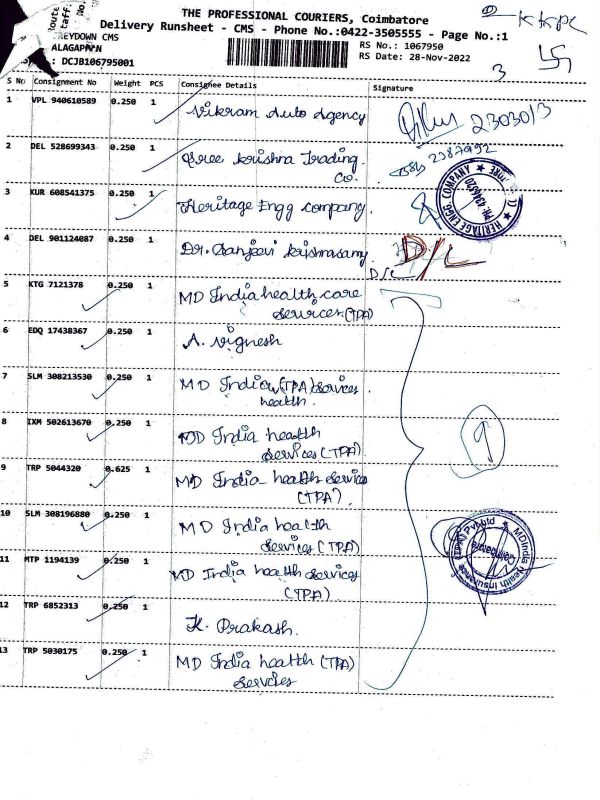 THE PROFESSIONAL COURIERS, Coimbatore
Delivery Runsheet - CMS - Phone No.:0422-3505555 - Page No.:1
KKPC
Route
Staff
No.
REYDOWN CMS
RS No.: 1067950
ALAGAPPAN
RS Date: 28-Nov-2022
: DCJB106795001
3
S No Consignment No Weight PCS Consignee Details Signature
1 VPL 940610589 0.250 1 Vikram Auto Agency 2303013
2 DEL 528699343 0.250 1 Sree Krishna Trading
Co. 2387992
3 KUR 608541375 0.250 1 Heritage Engg company.
HERITAGE ENGG. COMPANY
PH: 4346520
4 DEL 901124087 0.250 1 Dr. Sanjeevi Krishnasamy D/L
D/L
5 KTG 7121378 0.250 1 MD India health care
services (TPA)
6 EDQ 17438367 0.250 1 A. Vignesh
7 SLM 308213530 0.250 1 MD India (TPA) services
health.
8 IXM 502613670 0.250 1 MD India health
services (TPA)
9
9 TRP 5044320 0.625 1 MD India health service
(TPA)
10 SLM 308196880 0.250 1 MD India health
services (TPA)
MDIndia Health Insurance (TPA) Pvt Ltd
Coimbatore
11 MTP 1194139 0.250 1 MD India health services
(TPA)
12 TRP 6852313 0.250 1 K. Prakash.
13 TRP 5030175 0.250 1 MD India health (TPA)
services